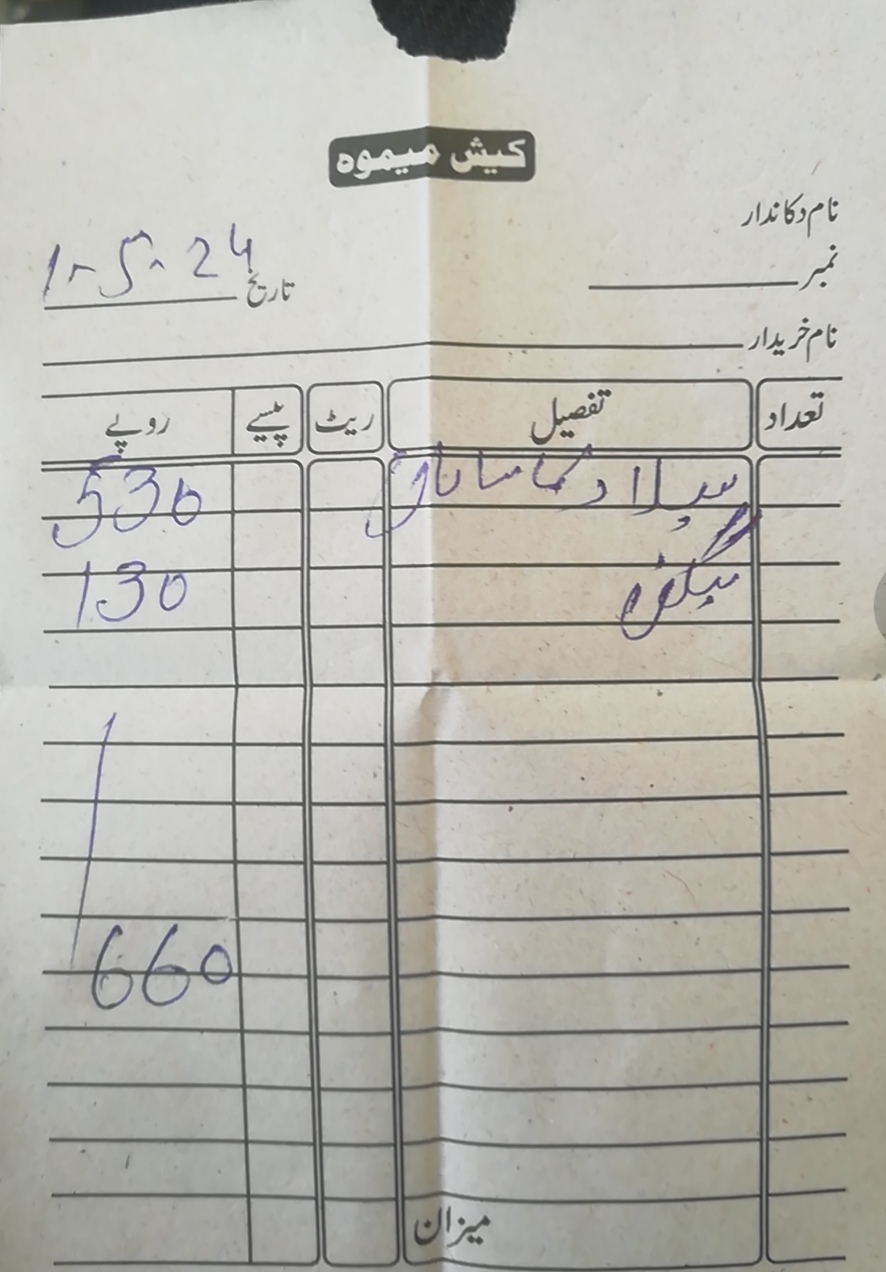 کیش میموہ
نام دکاندار
نمبر
تاریخ 1-5-24
نام خریدار
تعداد تفصیل ریٹ پیسے روپے
سیلاد کا سامان 530
130
660
میزان